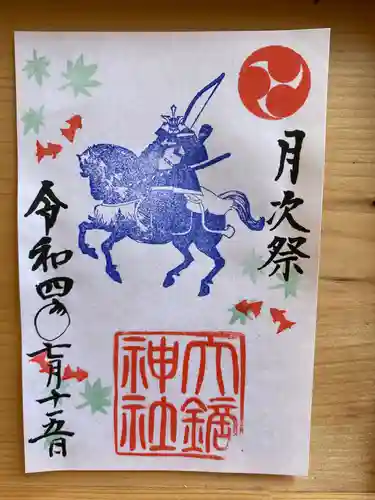 月次祭
大鏑
神社
令和四年
七月十五日